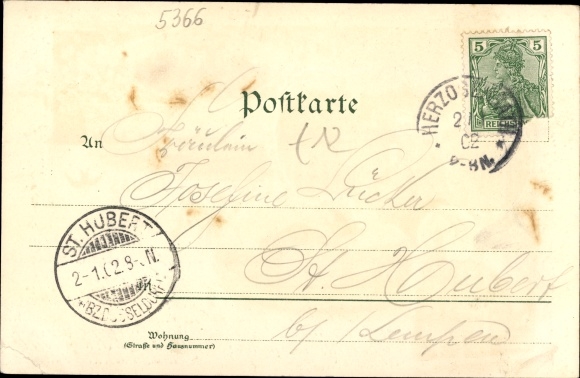 5366
5 5
REICHS
Postkarte
HERZO
2
02
8-N.
An Fräulein
Josefine Lücker
ST. HUBERT
2-1.02.8- N.
St. Hubert
In
BZ. DÜSSELDORF
b/ Kempen
Wohnung
(Straße und Hausnummer)